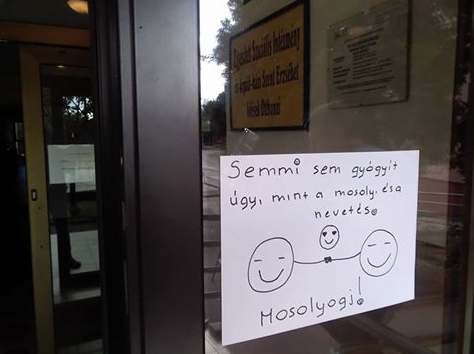 Egyesített Szociális Intézmény
Szent Erzsébet
Idősek Otthona
Semmi sem gyógyít
úgy, mint a mosoly, és a
nevetés.
Mosolyogj!